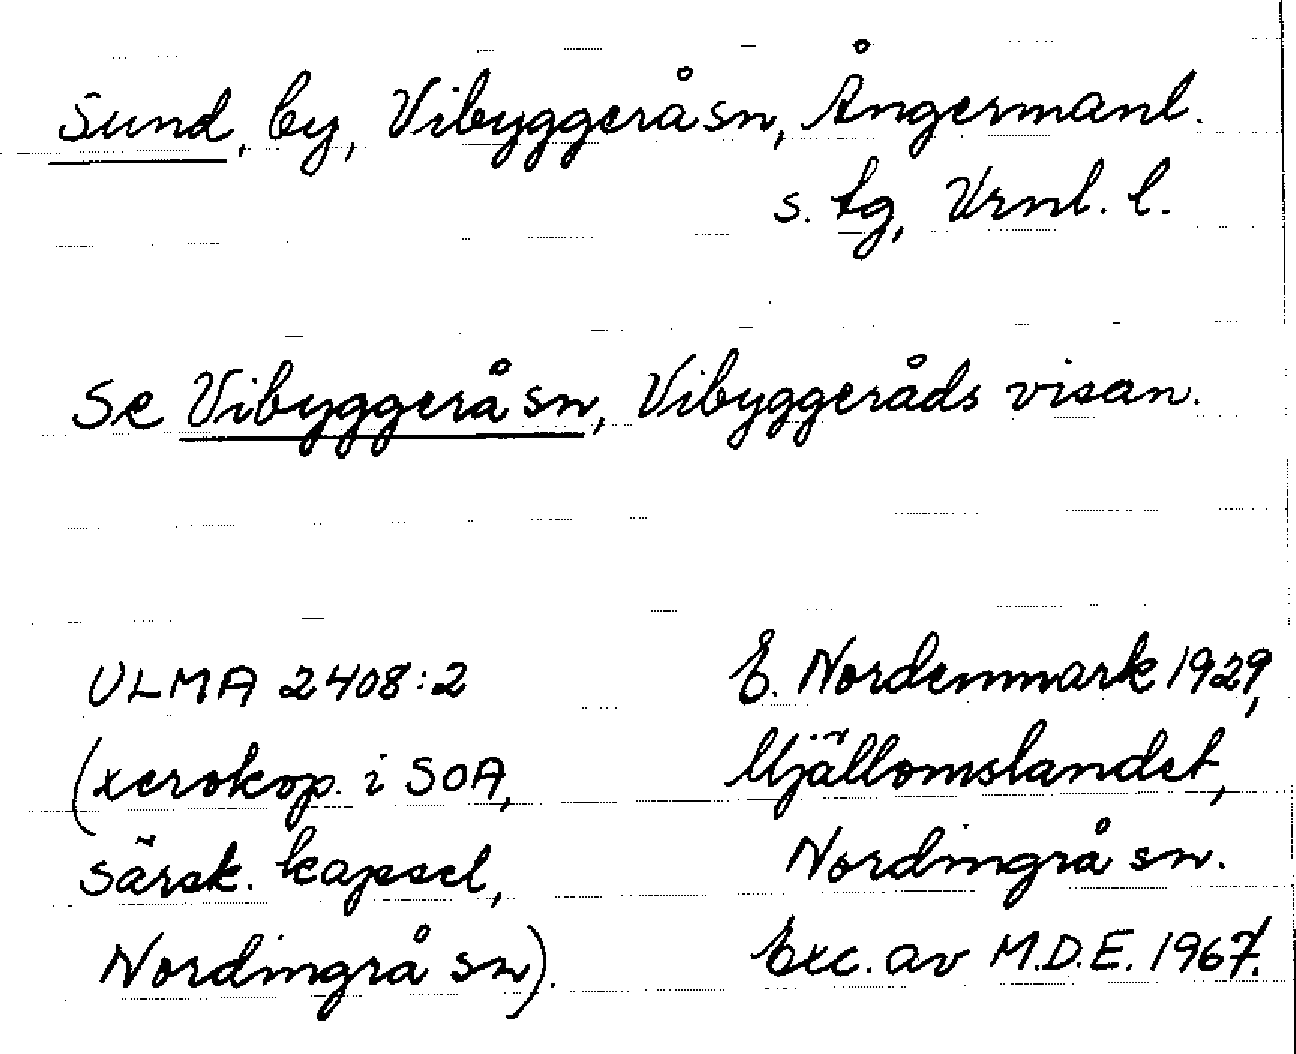 Sund, by, Vibyggerå sn, Ångermanl.
s. tg, Vrnl. l.
Se Vibyggerå sn, Vibyggeråds visan.
ULMA 2408:2
(xerokop. i SOA,
särsk. kapsel,
Nordingrå sn).
E. Nordenmark 1929,
Mjällomslandet,
Nordingrå sn.
Exc. av M.D.E. 1967.